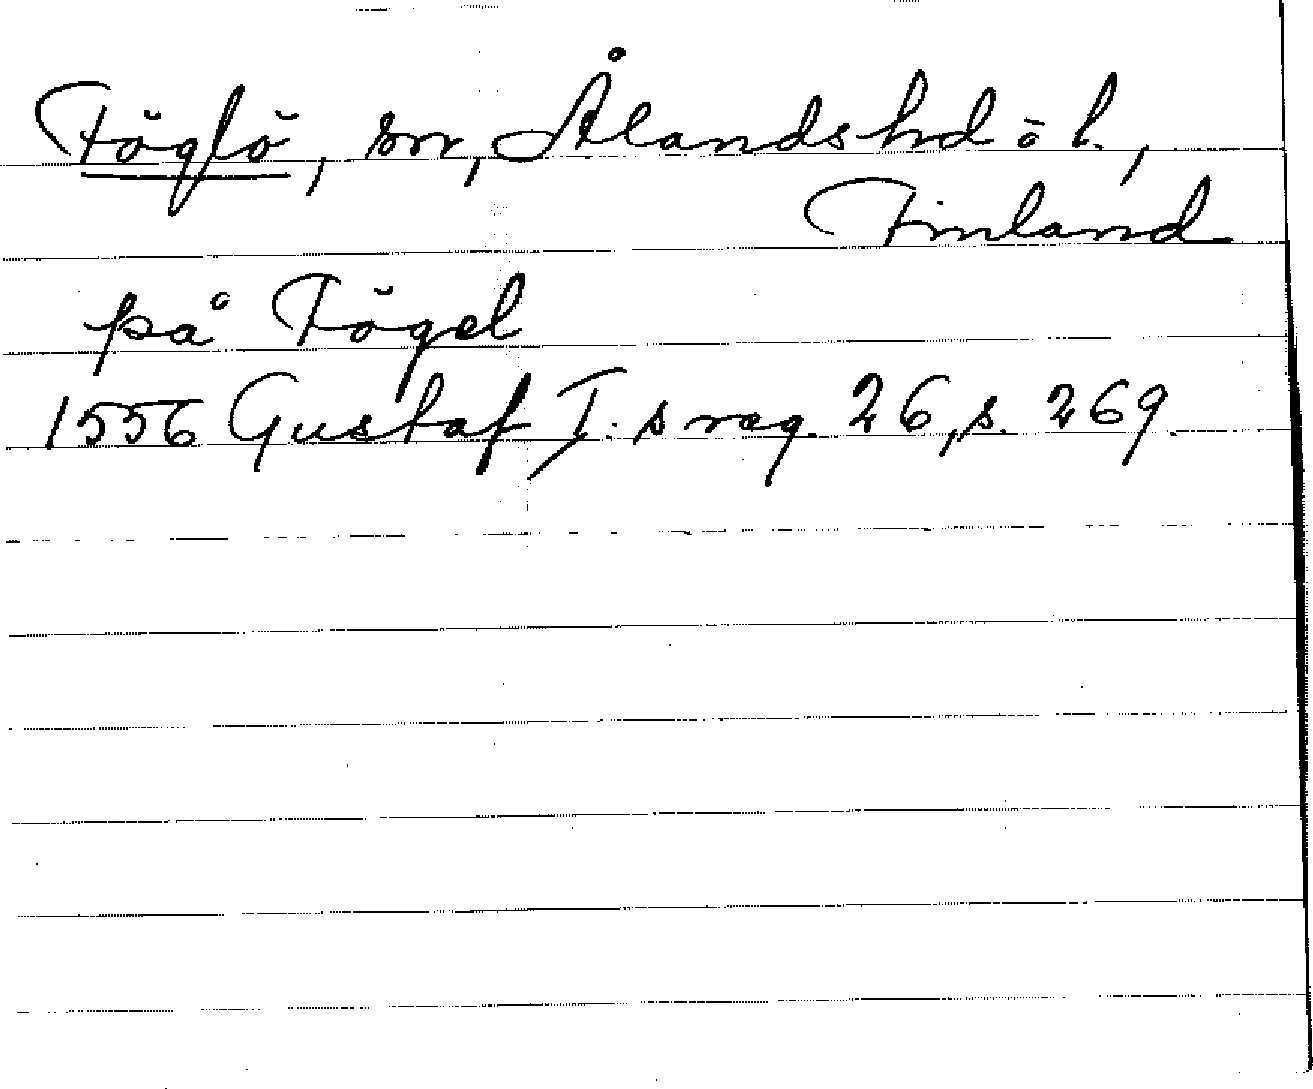 Föglö, sn, Ålands hd ō l.,
Finland
på Fögel
1556 Gustaf I:s reg. 26, s. 269.